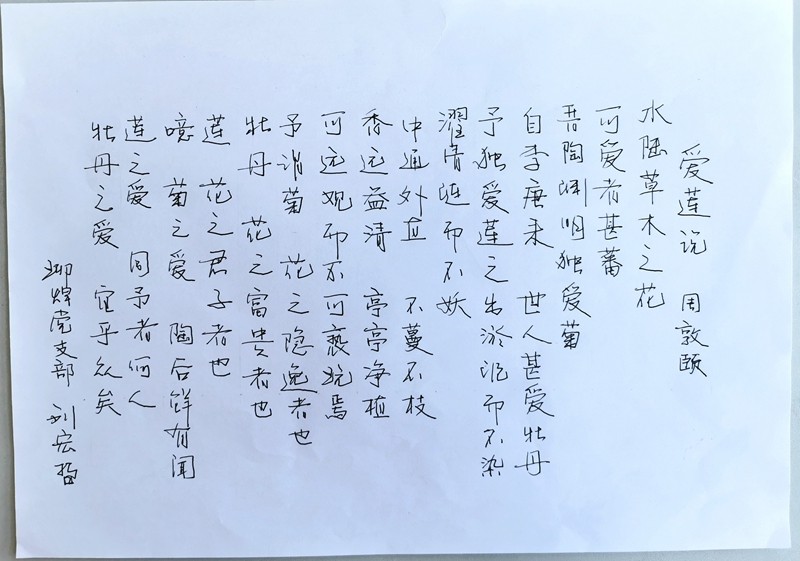 爱莲说 周敦颐
水陆草木之花
可爱者甚蕃
晋陶渊明独爱菊
自李唐来 世人甚爱牡丹
予独爱莲之出淤泥而不染
濯清涟而不妖
中通外直 不蔓不枝
香远益清 亭亭净植
可远观而不可亵玩焉
予谓菊 花之隐逸者也
牡丹 花之富贵者也
莲 花之君子者也
噫 菊之爱 陶后鲜有闻
莲之爱 同予者何人
牡丹之爱 宜乎众矣
焊党支部 刘宏哲